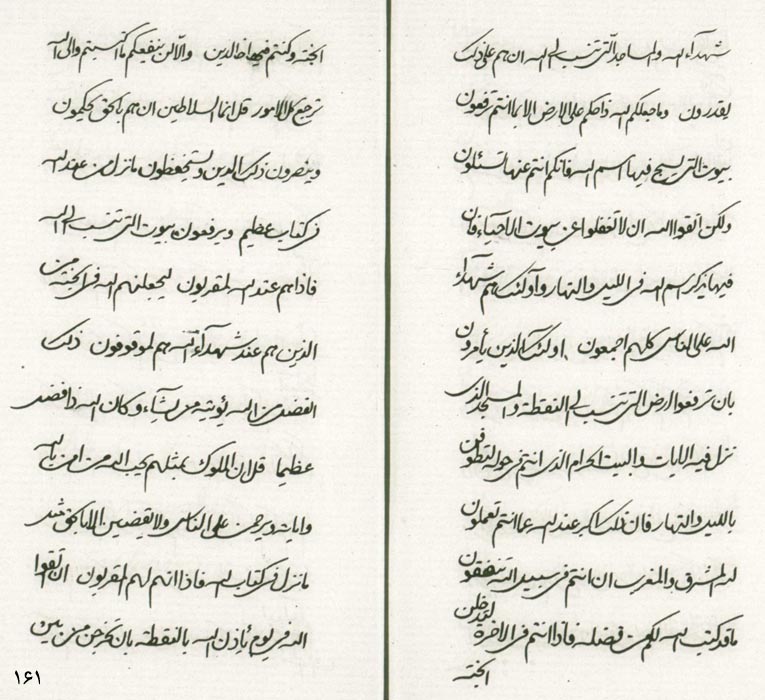 شهدآء الله والمساجد التي تنسب الى الله ان هم على ذلك
يقدرون وما جعلكم الله ذا حكم على الارض الا بما انتم ترفعون
بيوت التي يسبح فيها اسم الله فانكم انتم عنها تسئلون
ولكن اتقوا الله ان لا تغفلوا عن بيوت الاحياء فان
فيها يذكر اسم الله في الليل والنهار واولئك هم شهدآء
الله على الناس كلهم اجمعون اولئك الذين يأمرون
بان ترفعوا ارض التي تنسب الى النقطة والمسجد الذي
نزل فيه الايات والبيت الحرام الذي انتم في حوله لتطوفن
بالليل والنهار فان ذلك اكبر عند الله عما انتم تعملون
لله المشرق والمغرب ان انتم في سبيل الله تنفقون
ما قد كتب الله لكم من فضله فاذا انتم في الاخرة لتدخلن
الجنة
الجنة وكنتم فيها خالدين والا لن ينفعكم ما اكتسبتم والى الله
ترجع كل الامور قل انما السلاطين ان هم بالحق يحكمون
وينصرون ذكر الدين ويستحفظون ما نزل من عند الله
في كتاب عظيم ويرفعون بيوت التي تنسب الى الله
فاذا هم عند الله لمقربون ليجعلنهم الله في الجنة من
الذين هم عند شهدآء الله هم لموقوفون ذلك
الفضل من الله يؤتيه من يشآء وكان الله ذا فضل
عظيما قل ان الملوك بمثلهم يحب الله من امن بالله
واياته ويرحمن على الناس ولا يقضين الا بالحق مثل
ما نزل في كتاب الله فاذا انهم لهم المقربون ان اتقوا
الله في يوم يأذن الله بالنقطة بان يخرجن من بين
۱۶۱